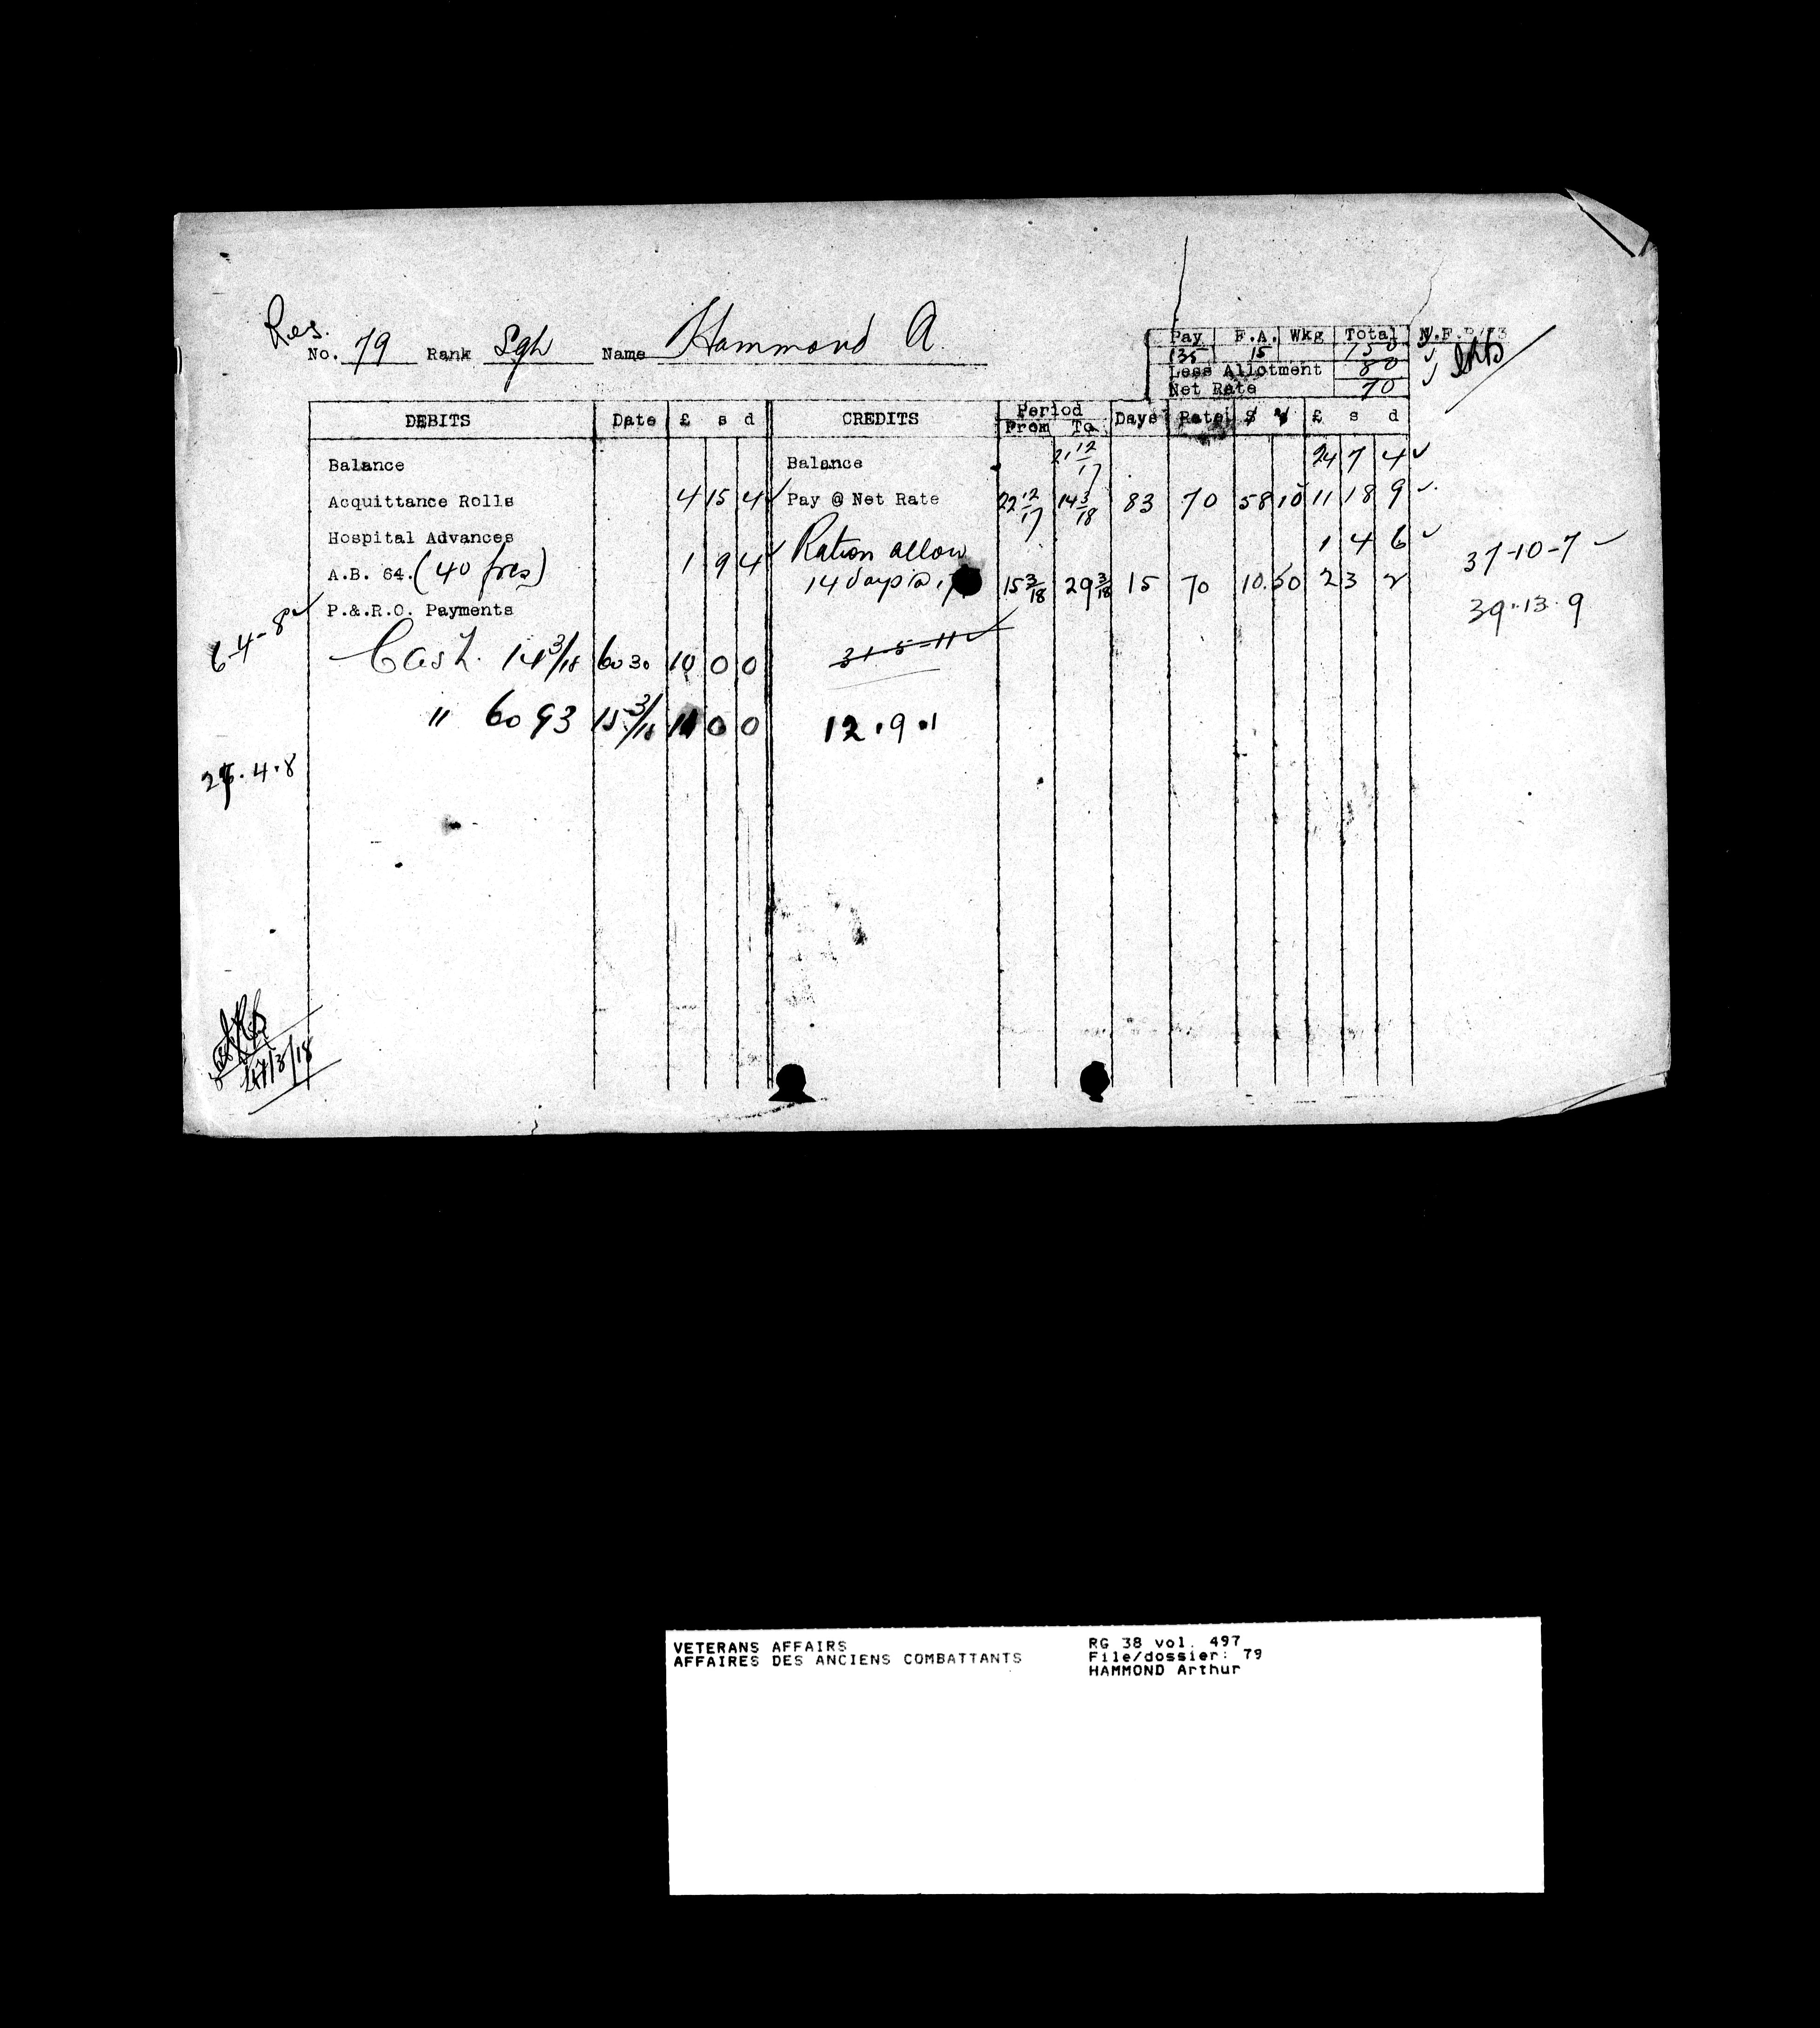 Res.
No. 79 Rank Sgt Name Hammond A
Pay F.A. Wkg Total
135 15 150 ✓
Less Allotment 80
Net Rate 70 ✓
DEBITS Date £ s d CREDITS Period From To Days Rate $ £ s d
Balance Balance 21 12/17 24 7 4 ✓
Acquittance Rolls 4 15 4 ✓ Pay @ Net Rate 22 12/17 14 3/18 83 70 58 10 11 18 9 ✓
Hospital Advances Ration allow 1 4 6 ✓ 37-10-7 ✓
A.B. 64. (40 frcs) 1 9 4 ✓ 14 days @ 15 3/18 29 3/18 15 70 10.50 2 3 2
39.13.9
6-4-8 ✓ P.&.R.O. Payments
Cash. 14 3/18 6030 10 0 0 31-5-11 ✓
" 6093 15 3/18 0 0 12.9.1
4.8
VETERANS AFFAIRS RG 38 vol. 497
AFFAIRES DES ANCIENS COMBATTANTS File/dossier: 79
HAMMOND Arthur